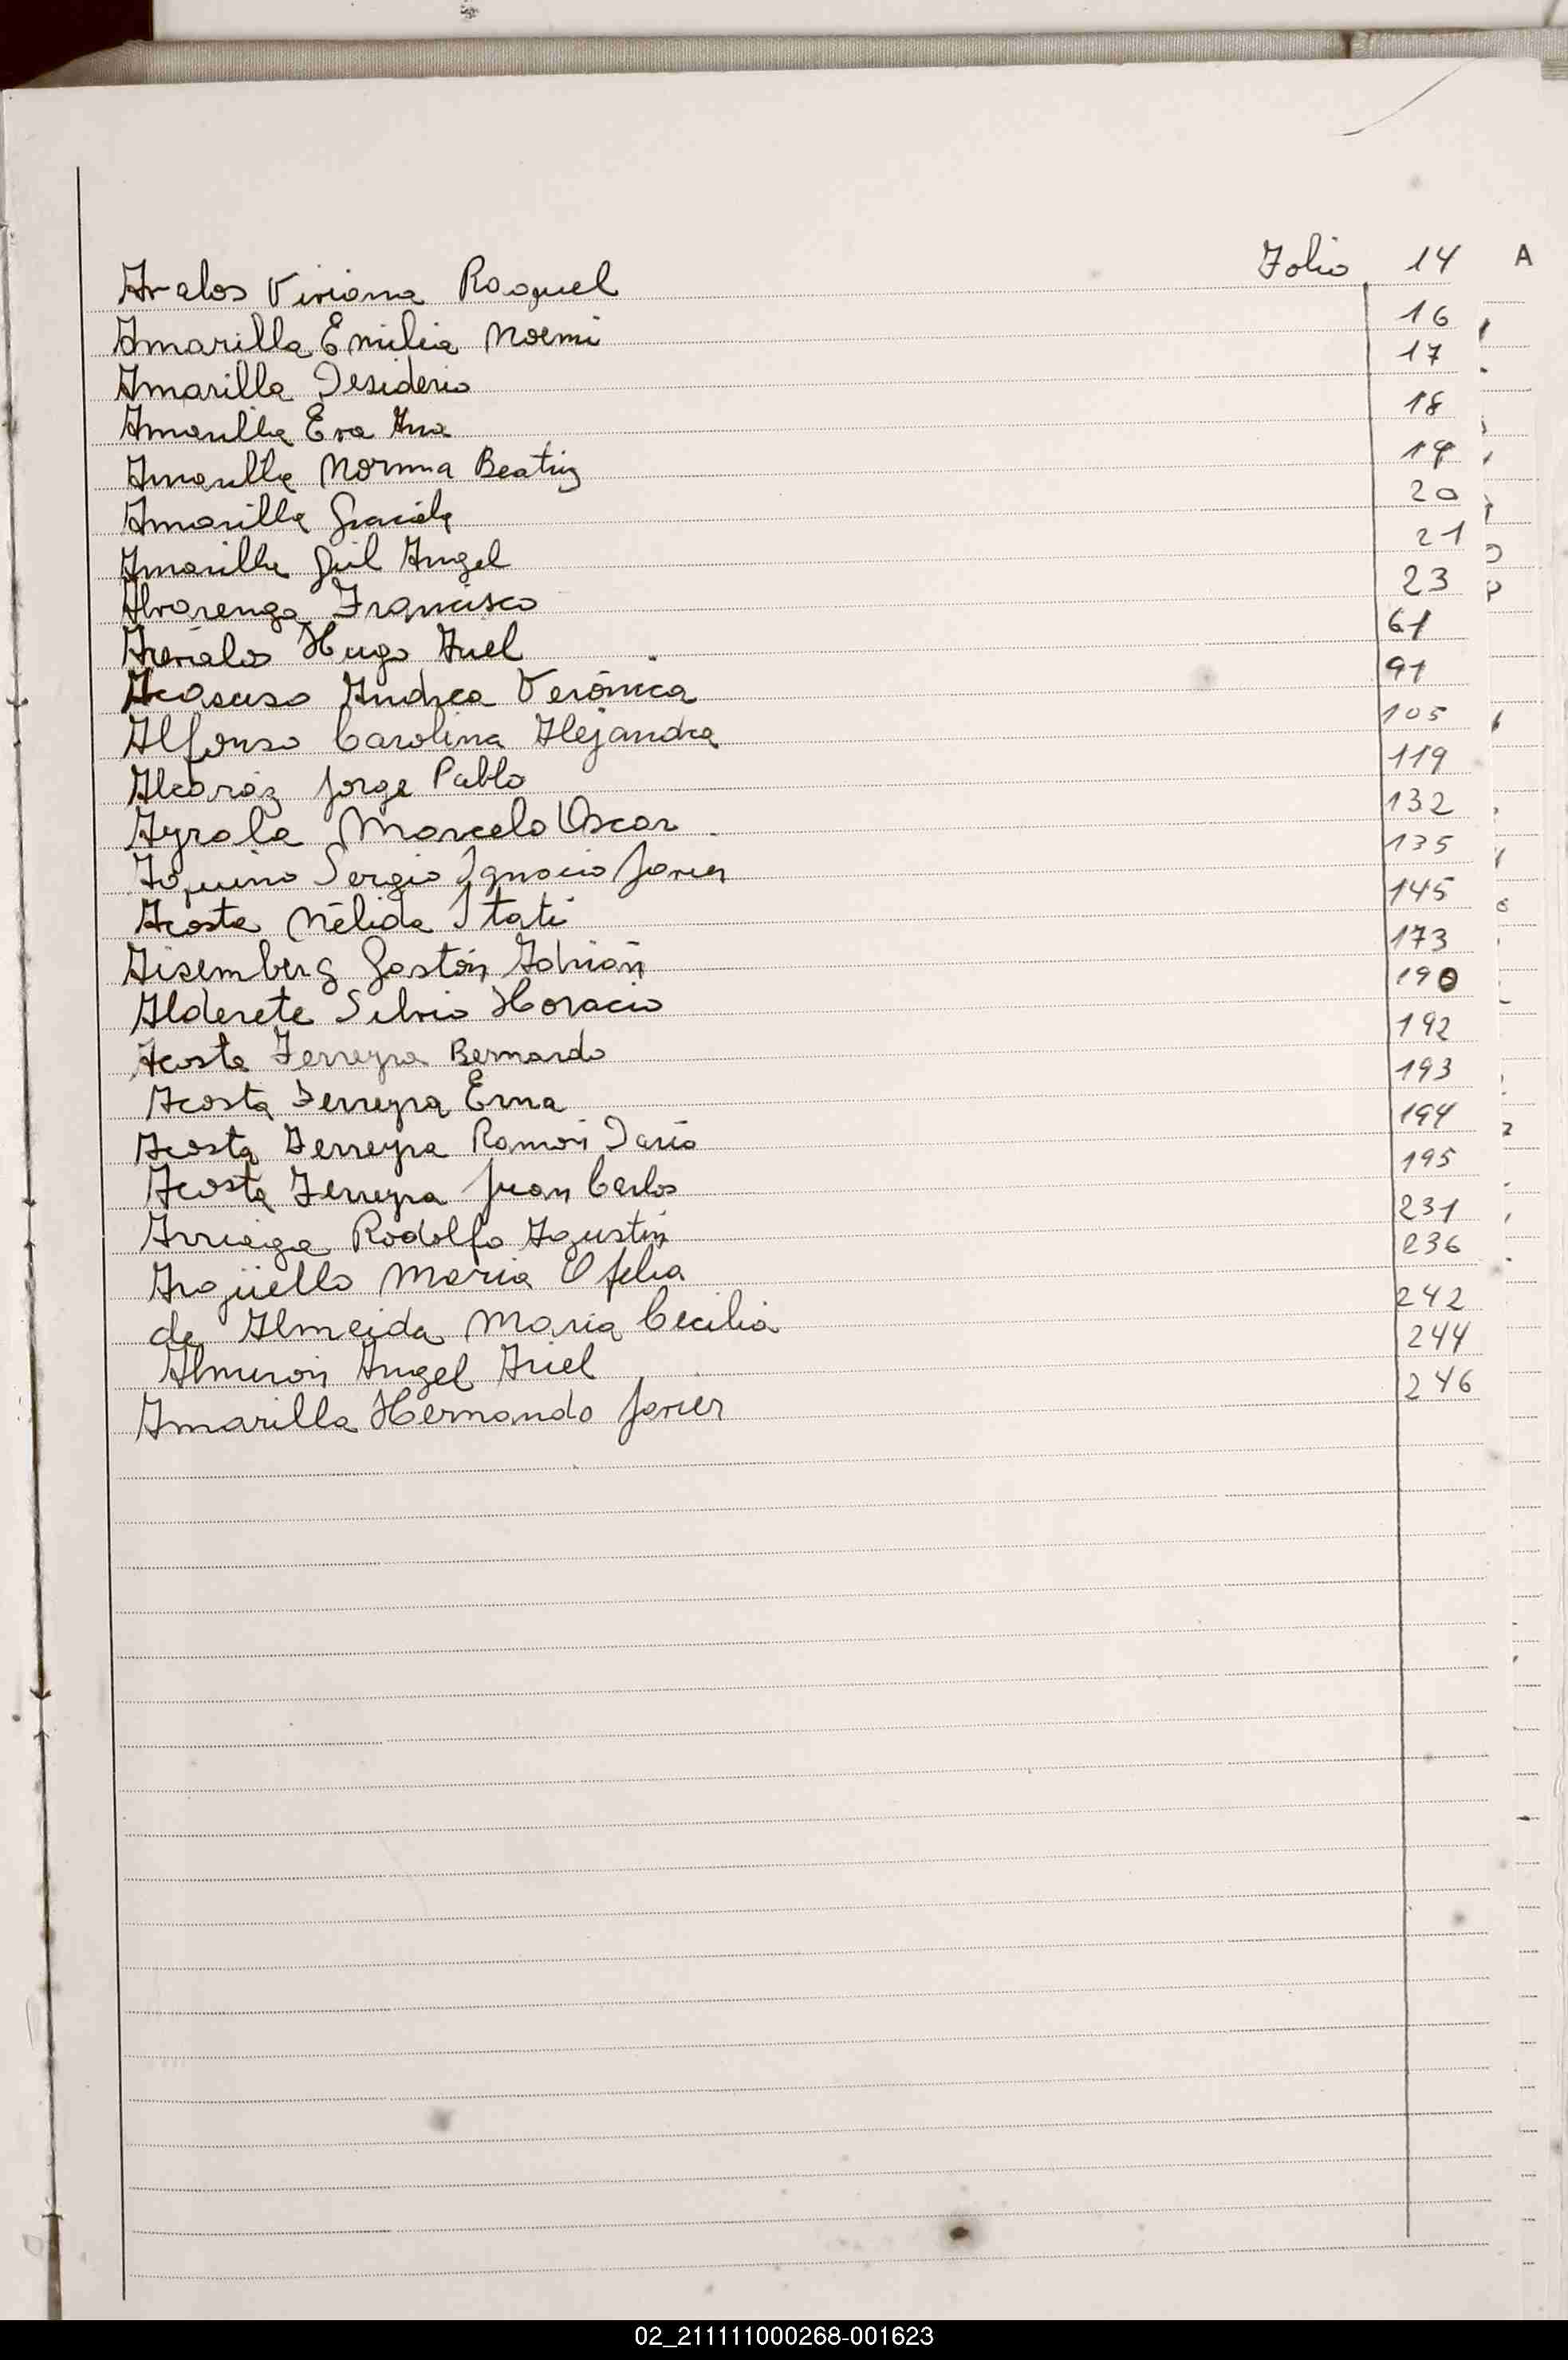 Avalos Viviana Raquel Folio 14 A
Amarilla Emilia Noemi 16
Amarilla Desiderio 17
Amarilla Eva Ana 18
Amarilla Norma Beatriz 19
Amarilla Graciela 20
Amarilla Gil Angel 21
Alvarenga Francisco 23
Arévalos Hugo Ariel 61
Acasuso Andrea Verónica 91
Alfonso Carolina Alejandra 105
Alcaráz Jorge Pablo 119
Ayrala Marcelo Oscar 132
Aquino Sergio Ignacio Javier 135
Acosta Nélida Itati 145
Aisemberg Gastón Adrián 173
Alderete Silvio Horacio 190
Acosta Ferreyra Bernardo 192
Acosta Ferreyra Erna 193
Acosta Ferreyra Ramón Dario 194
Acosta Ferreyra Juan Carlos 195
Arriaga Rodolfo Agustín 231
Argüello Maria Ofelia 236
de Almeida Maria Cecilia 242
Almirón Angel Ariel 244
Amarilla Hernando Javier 246
02_211111000268-001623